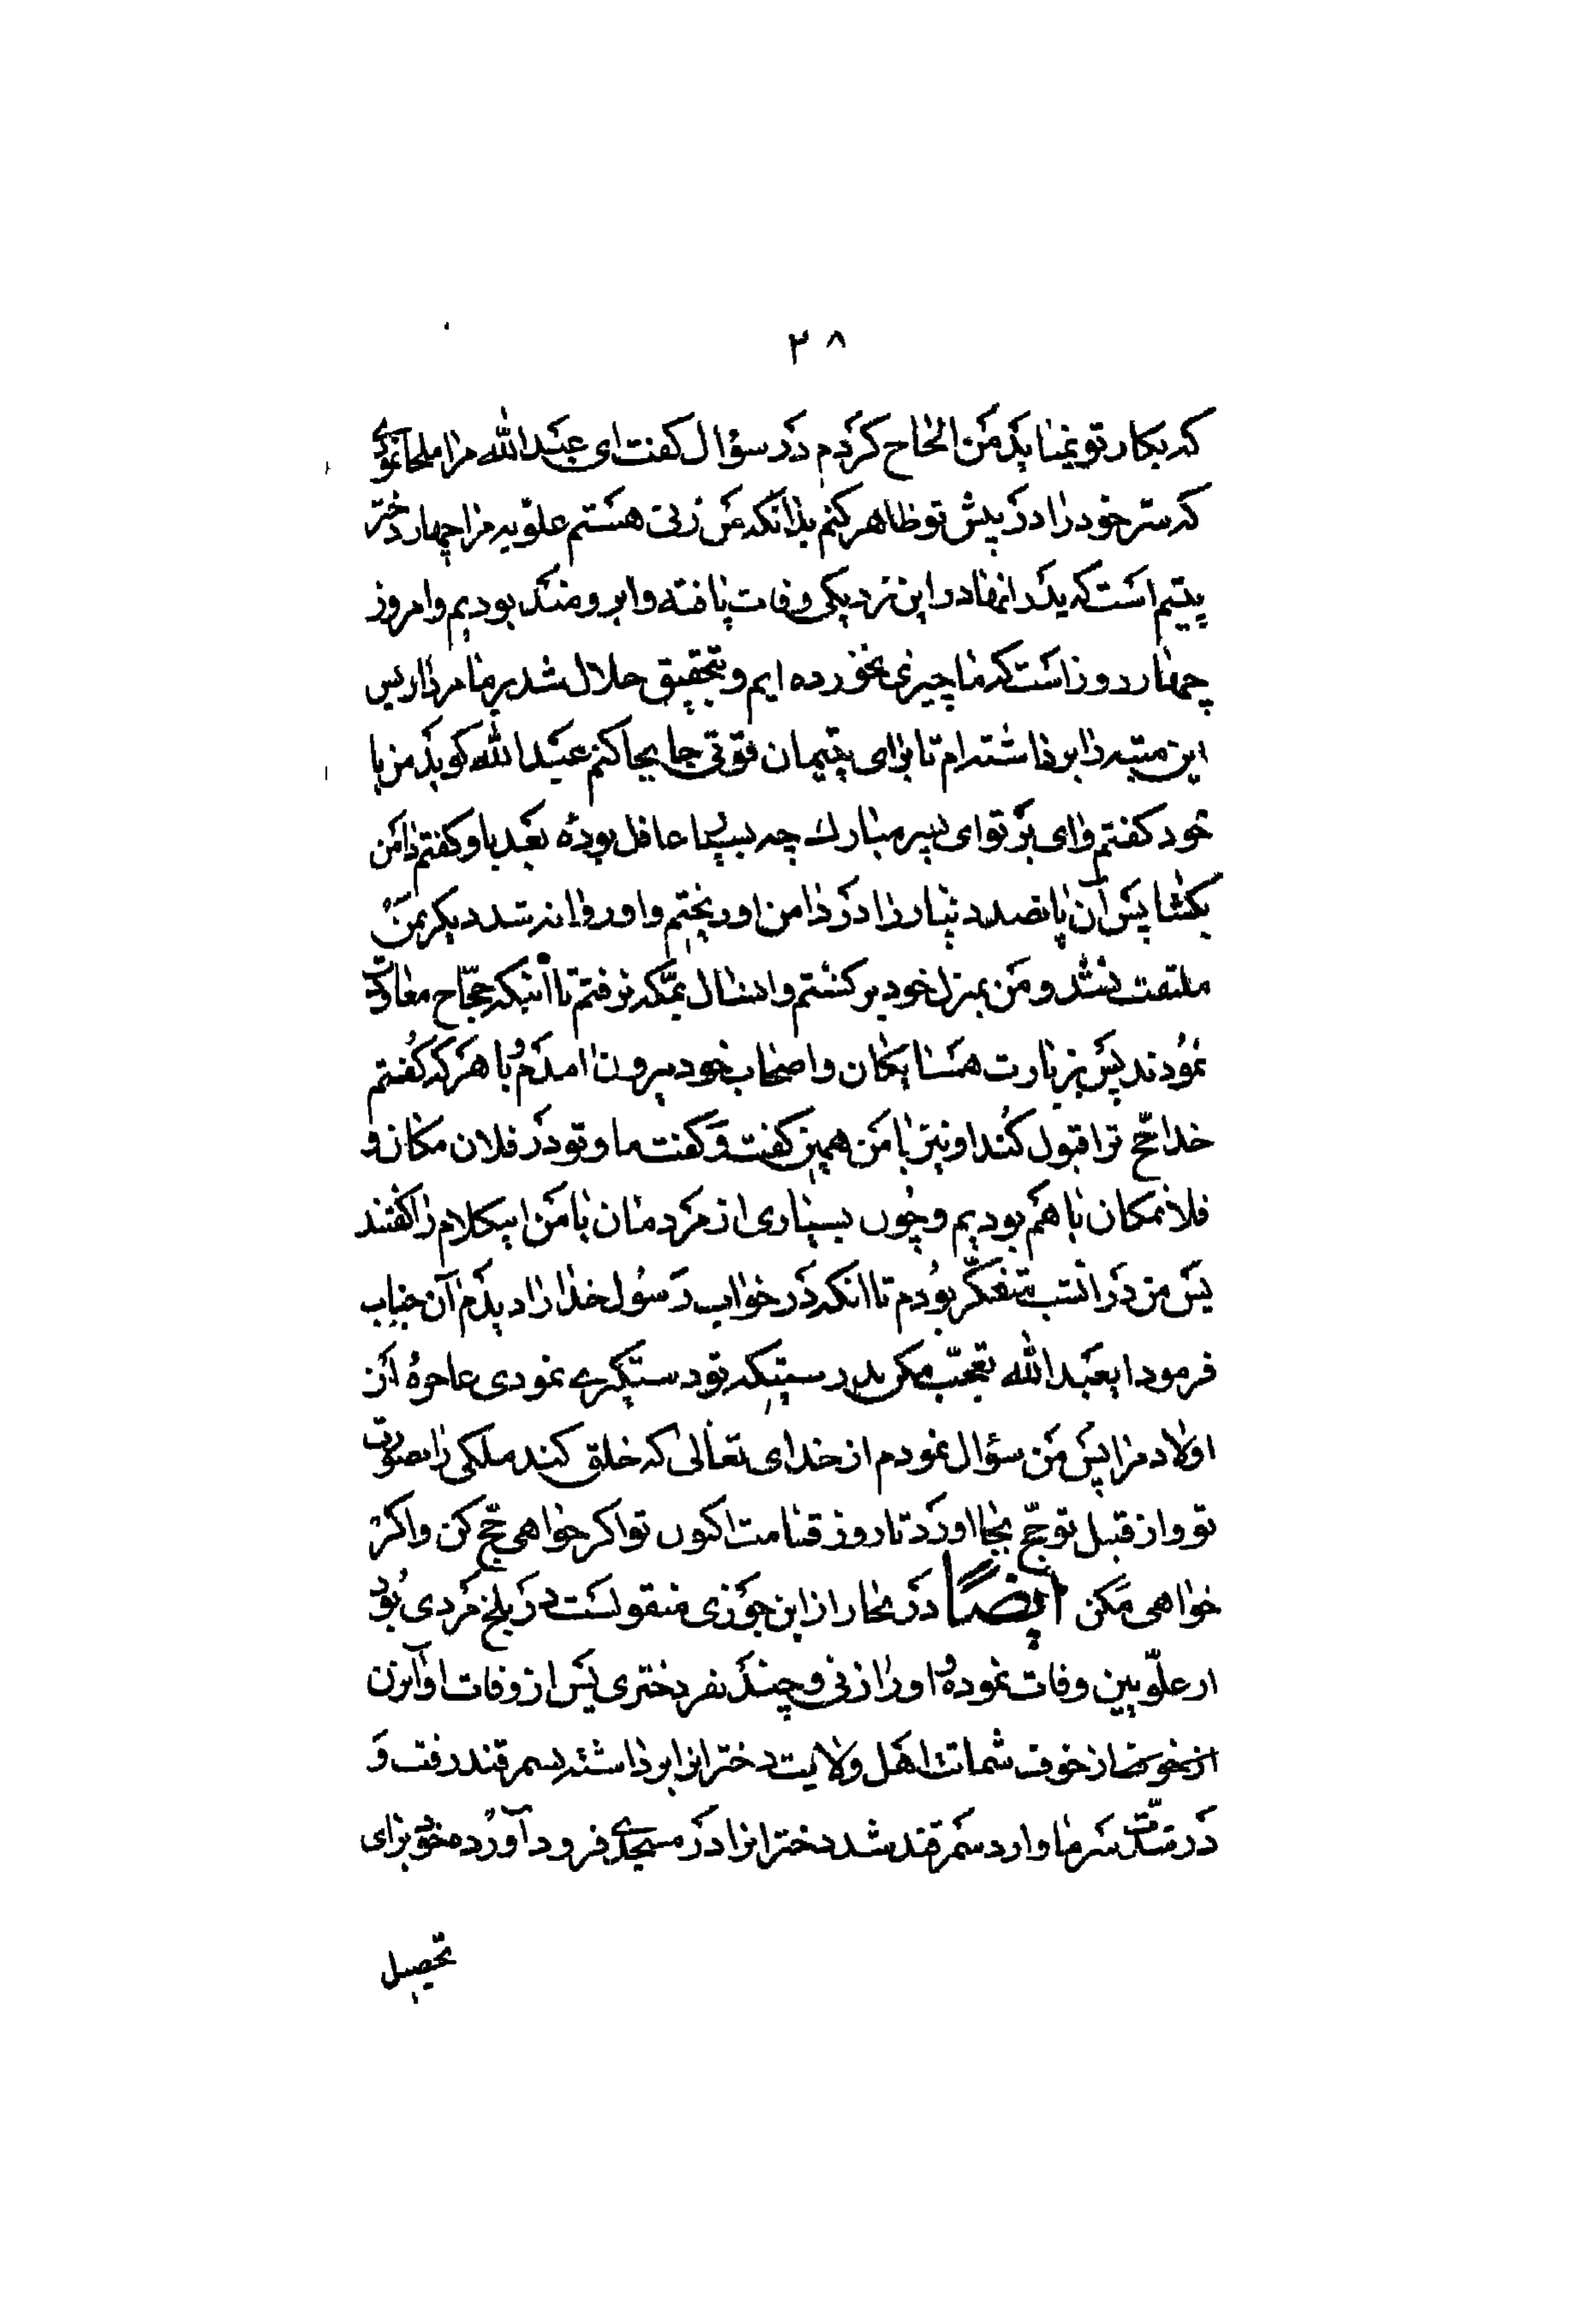 ۳۸
که بکار تو نمیاید من الحاح کردم در سؤال کفت ای عبدالله مرا ملجا نمودی
که ستر خود را در پیش تو ظاهر کنم بدانکه من زنی هستم علویه مرا چهار دختر
یتیم است که یدر انها در این نزدیکی وفات یافته وابرومند بودیم وامروز
چهار روز است که ما چیزی نخورده ایم و بتحقیق حلال شد بر ما مردار پس
این میته را برداشته ام تا برای یتیمان قوتی جا بجا کنم عبدالله کوید من با
خود کفتم وای بر تو ای پسر مبارک چه بسیار غافل بودهٔ بعد باو کفتم دامن
بکشا پس آن پانصد دینار را در دامن او ریختم و او روانه شد دیکر بمن
ملتفت نشد و من بمنزل خود برکشتم و انسال بمکه نرفتم تا آنیکه حجّاج معاودت
نمودند پس بزیارت همسایکان واصحاب خود بیرون امدم و با هر که کفتم
خدا حجّ ترا قبول کند او نیز با من همین کفت و کفت ما و تو در فلان مکان و
فلانمکان با هم بودیم و چون بسیاری از مردمان با من اینکلام را کفتند
پس من در انشب متفکّر بودم تا انکه در خواب رسول خدا را دیدم آن جناب
فرمود ایعبدالله تعجّب مکن بدرستیکه تو دستکیری نمودی عاجزهٔ از
اولاد مرا پس من سؤال نمودم از خدای تعالی که خلق کند ملکی را بصورت
تو و از قبل تو حجّ بجا اورد تا روز قیامت اکنون تو اکر خواهی حجّ کن واکر
خواهی مکن ایضاً در بحار از ابن جوزی منقولست در بلخ مردی بود
از علّویین وفات نموده و او را زنی و چند نفر دختری پس از وفات او آنزن
از خوف شماتت اهل ولایت دخترانرا برداشته بسمرقند رفت و
در شدّت سرما وارد سمرقند شد دخترانرا در مسجدی فرود آورده خود برای
تحصیل